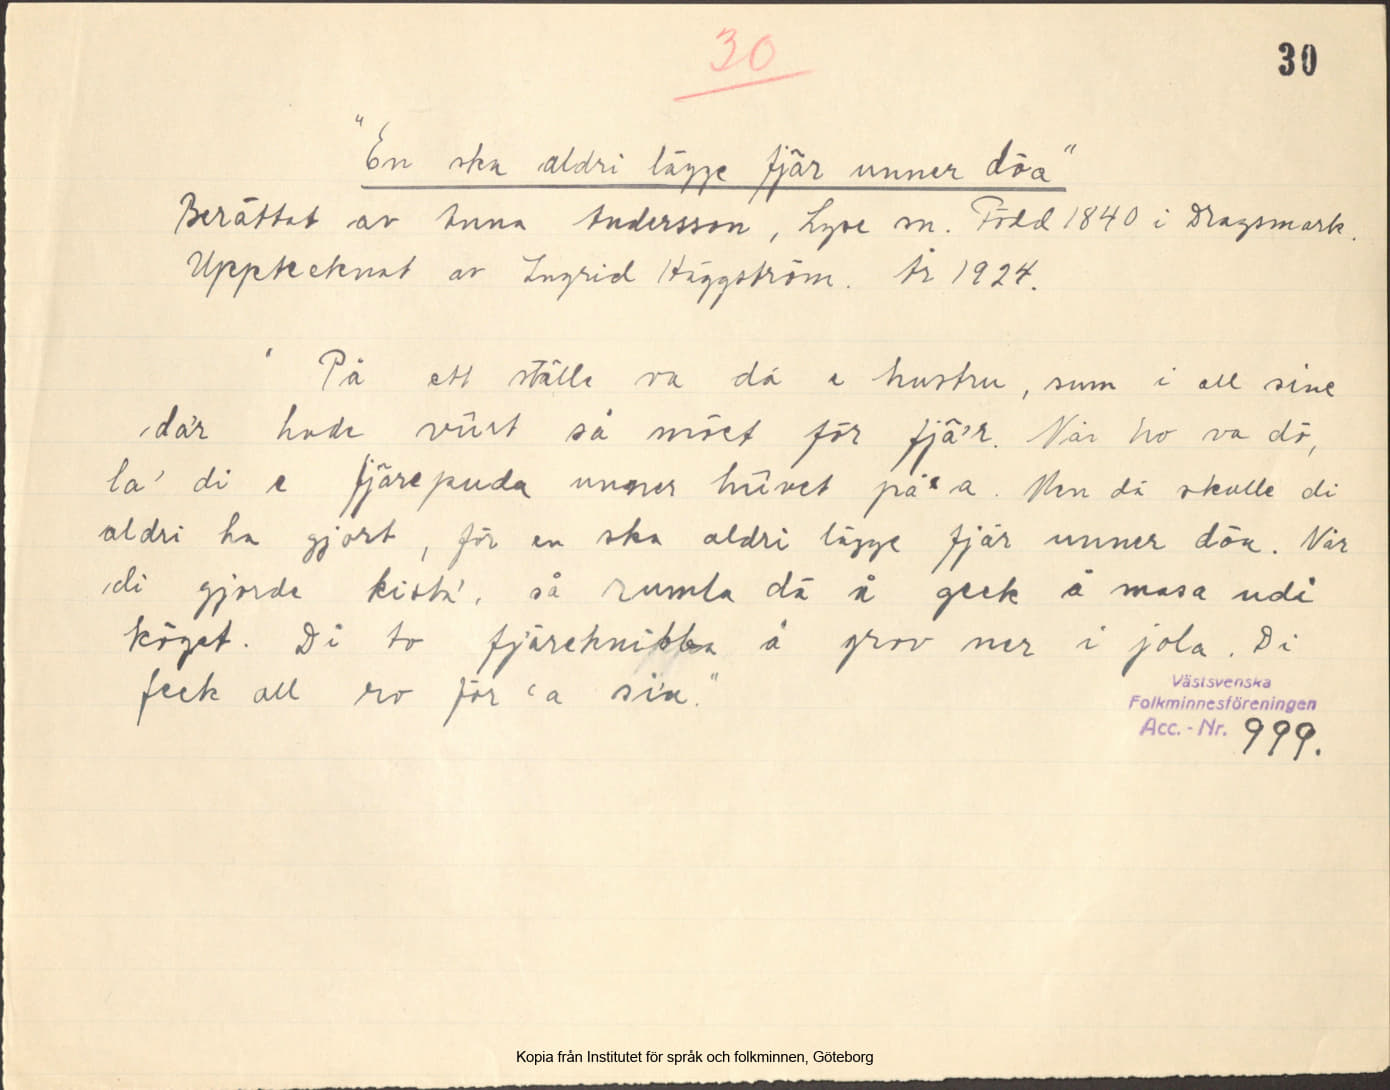 30
30
"En ska aldri lägge fjär unner döa"
Berättat av Anna Andersson, Lyse sn. Född 1840 i Dragsmark.
Upptecknat av Ingrid Häggström. År 1924.
"På ett ställe va dä e hustru, sum i all sine
dár hade vûrt så möet för fjä'r. När ho va dö,
la' di e fjärepuda unner hûvet på 'a. Men dä skulle di
aldri ha gjort, för en ska aldri lägge fjär unner döa. När
di gjorde kista', så rumla dä å geek å masa udi
köget. Di to fjäreknibba å grov ner i jola. Di
feek all ro för 'a si'a."
Västsvenska
Folkminnesföreningen
Acc.-Nr. 999.
Kopia från Institutet för språk och folkminnen, Göteborg